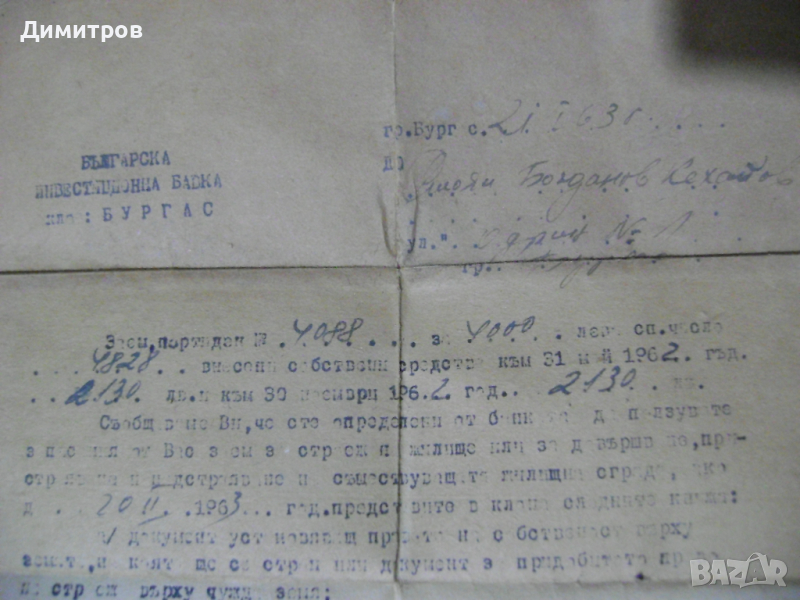 Димитров
гр.Бург с. 21 I 63г. . . .
БЪЛГАРСКА
ИНВЕСТИЦИОННА БАНКА
клон: БУРГАС
до
Богданов
ул."
№ 1
гр..
Заем,партиден № 4088 . . . за 4000 . лева сп.число
. . . 4828 . . внесени собствени средства към 31 май 1962 год.
. . 2130 . лв.и към 30 ноември 1962 год.. . 2130 . . лв.
Съобщаваме Ви,че сте определени от банката да ползувате
заем за строеж на жилище или за довършване,при-
строяване и надстрояване на съществуващата жилищна сграда, ако
до . . 20 II . .1963 . . год.представите в клона следните книжа:
а/ документ установяващ правото на собственост върху
земята,на която ще се строи или документ за придобитото право
на строеж върху чужда земя;
BAZAR